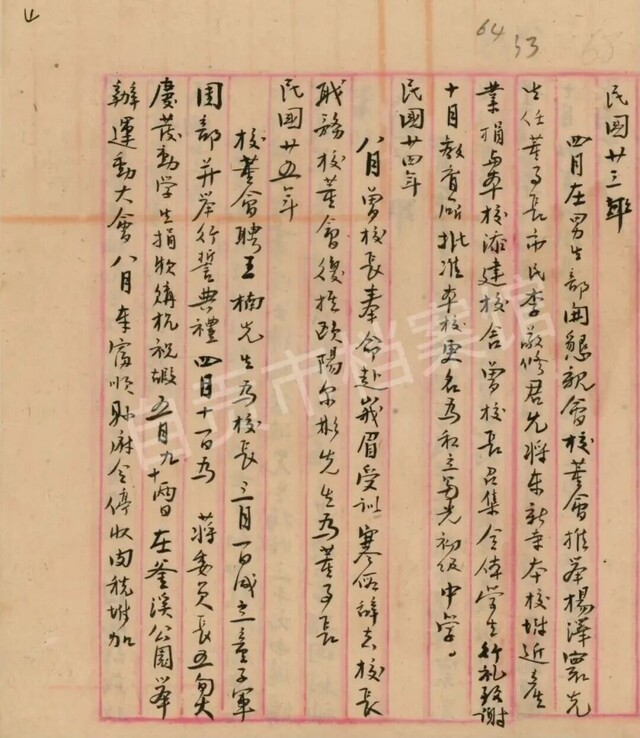 64
53
民國廿三年
四月在男生部開懇親會校董會推举楊澤寰先
生任董事長市民李敬修君先將東新寺本校坿近產
業捐与本校添建校舍曾校長召集全体学生行礼致謝
十月教育所批准本校更名為私立蜀光初级中学。
民國廿四年
八月曾校長奉命赴峩眉受訓寒假辞去校長
職務校董會復推歐陽尔彬先生為董事長
民國廿五年
校董會聘王楠先生為校長三月一日成立童子軍
團部并举行誓典禮四月十一日為蔣委員長五旬大
慶發動学生捐欵購机祝嘏五月九十兩日在釜溪公園举
辦運動大會八月奉富順縣府令停收肉稅坿加
自贡市档案馆